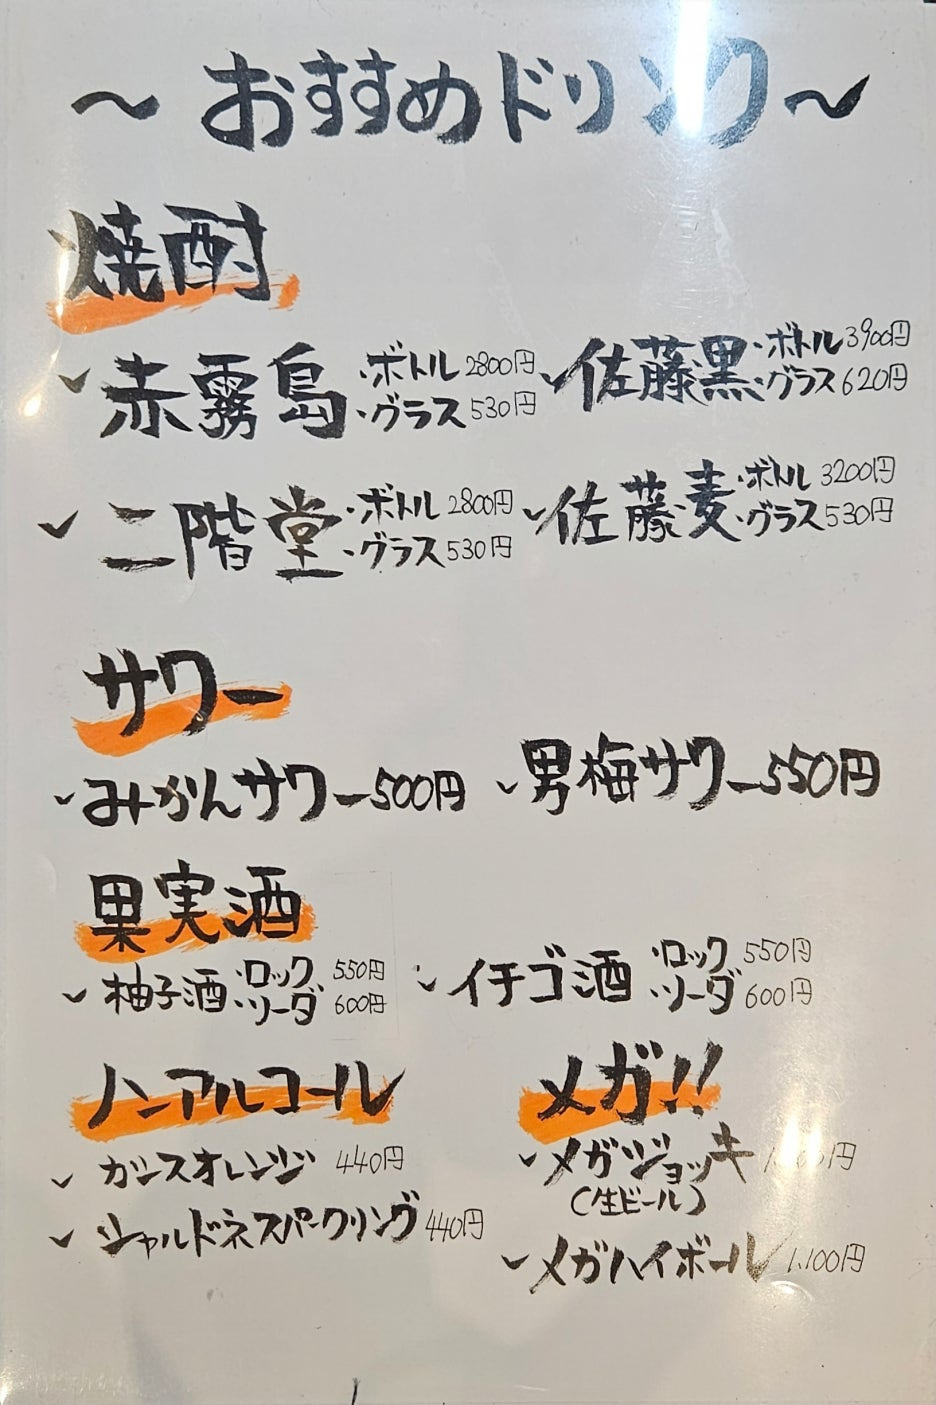 ～おすすめドリンク～
焼酎
赤霧島 ・ボトル 2800円
・グラス 530円
佐藤黒 ・ボトル 3900円
・グラス 620円
二階堂 ・ボトル 2800円
・グラス 530円
佐藤麦 ・ボトル 3200円
・グラス 530円
サワー
みかんサワー 500円
男梅サワー 550円
果実酒
柚子酒 ・ロック 550円
・ソーダ 600円
イチゴ酒 ・ロック 550円
・ソーダ 600円
ノンアルコール
カシスオレンジ 440円
シャルドネスパークリング 440円
メガ!!
メガジョッキ
(生ビール)
メガハイボール 1.100円